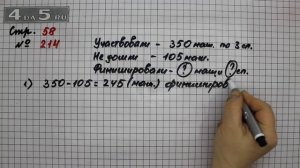 4DA5.RU
Стр. 58
№ 214
Участвовали - 350 маш. по 3 сп.
Не дошли - 105 маш.
Финишировали - ? машин ? сп.
1) 350 - 105 = 245 (маш.) финиширов